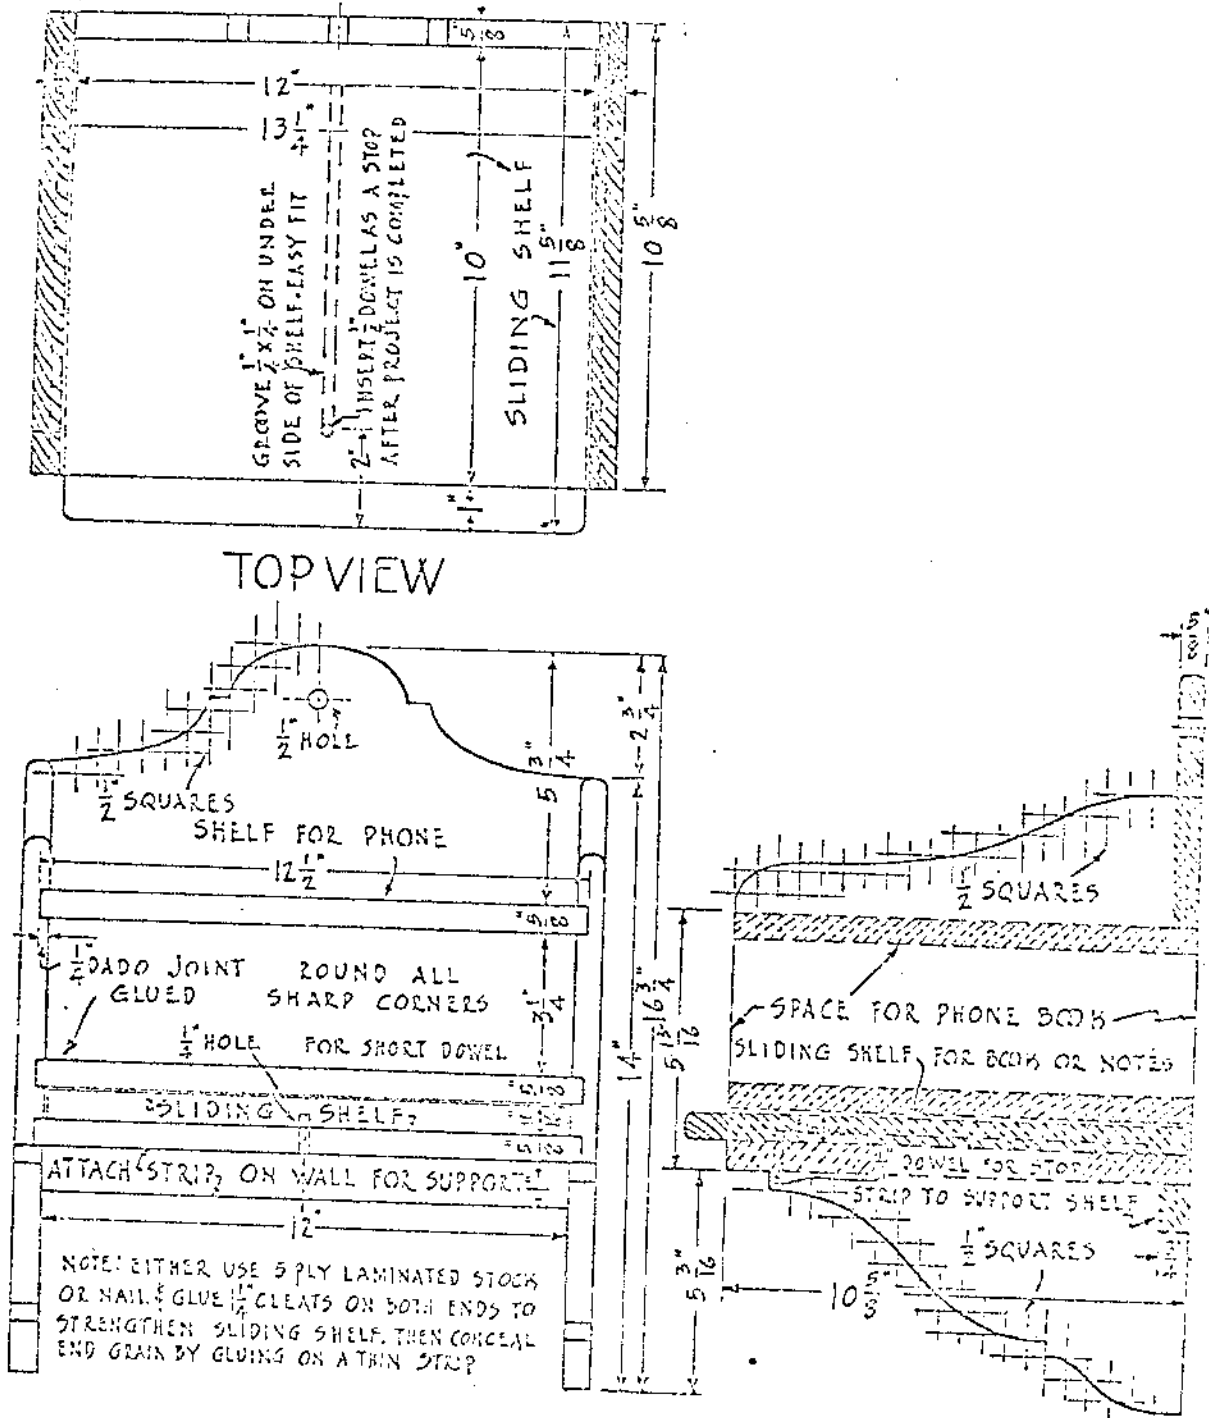 5/8"
12"
13 1/4"
GROOVE 1/2" X 1/4" ON UNDER
SIDE OF SHELF. EASY FIT
2"
INSERT 1/2" DOWEL AS A STOP
AFTER PROJECT IS COMPLETED
10"
SLIDING SHELF
11 5/8"
10 5/8"
1"
TOP VIEW
1/2" HOLE
1/2" SQUARES
SHELF FOR PHONE
12 1/2"
5 3/4"
2 3/4"
5/8"
1/4" DADO JOINT
GLUED
ROUND ALL
SHARP CORNERS
3 1/4"
16 3/4"
14"
1/4" HOLE FOR SHORT DOWEL
5/8"
SLIDING SHELF
5/8"
ATTACH STRIP ON WALL FOR SUPPORT
12"
NOTE: EITHER USE 5 PLY LAMINATED STOCK
OR NAIL & GLUE 1 1/4" CLEATS ON BOTH ENDS TO
STRENGTHEN SLIDING SHELF. THEN CONCEAL
END GRAIN BY GLUING ON A THIN STRIP
5/8"
1/2" SQUARES
SPACE FOR PHONE BOOK
SLIDING SHELF FOR BOOK OR NOTES
5 13/16"
DOWEL FOR STOP
STRIP TO SUPPORT SHELF
1/2" SQUARES
5 3/16"
10 5/8"